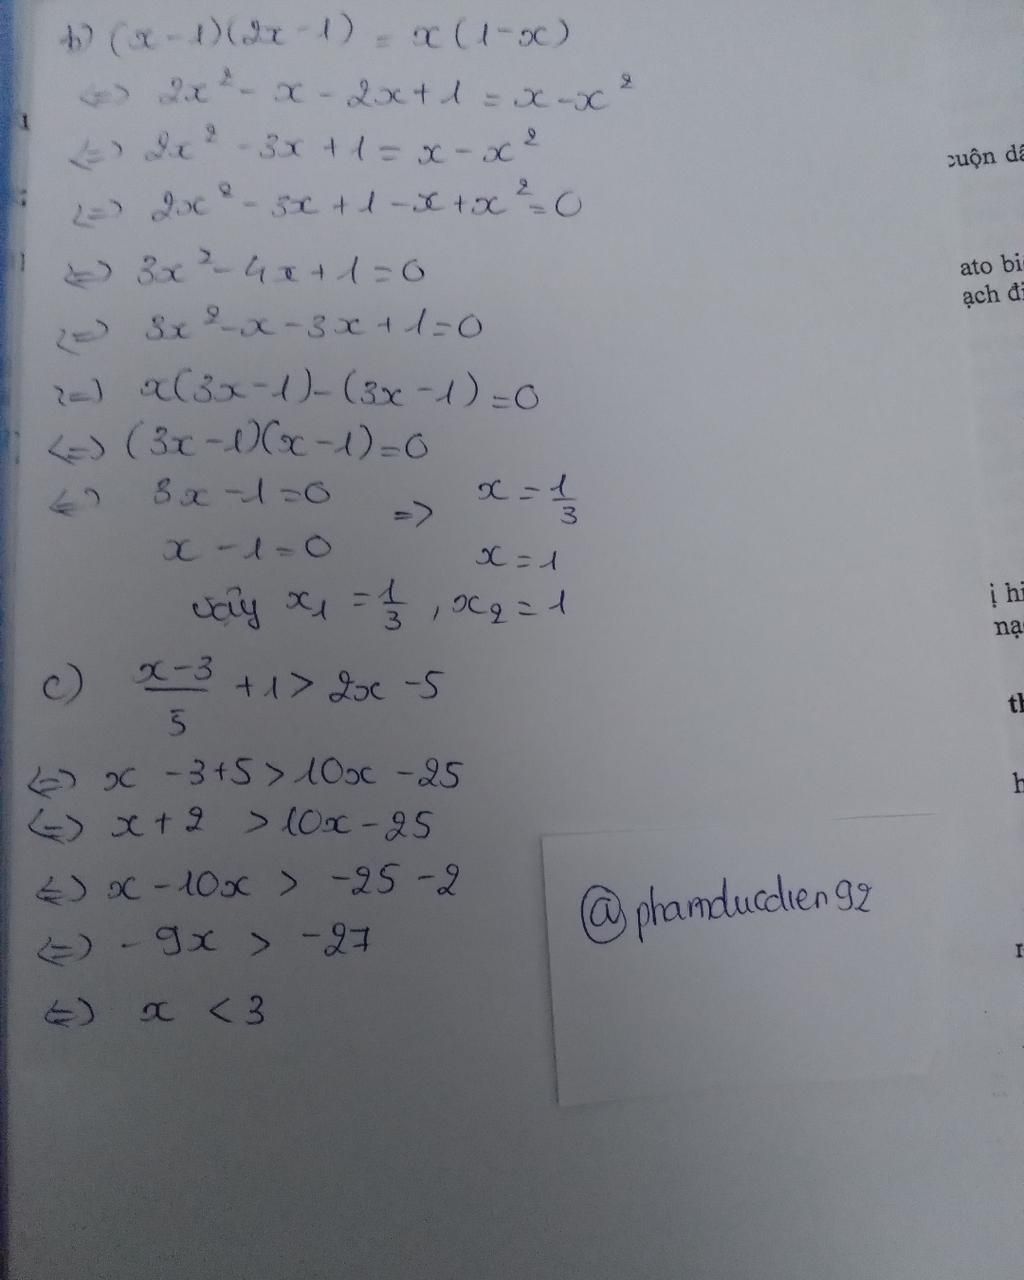 b) (x-1)(2x-1) = x(1-x)
<=> 2x² - x - 2x + 1 = x - x²
<=> 2x² - 3x + 1 = x - x²
<=> 2x² - 3x + 1 - x + x² = 0
<=> 3x² - 4x + 1 = 0
<=> 3x² - x - 3x + 1 = 0
<=> x(3x-1) - (3x-1) = 0
<=> (3x-1)(x-1) = 0
<=> 3x - 1 = 0 => x = 1/3
x - 1 = 0 x = 1
vậy x₁ = 1/3, x₂ = 1
c) (x-3)/5 + 1 > 2x - 5
<=> x - 3 + 5 > 10x - 25
<=> x + 2 > 10x - 25
<=> x - 10x > -25 - 2
<=> -9x > -27
<=> x < 3
@phamducdien92
ato
ạch